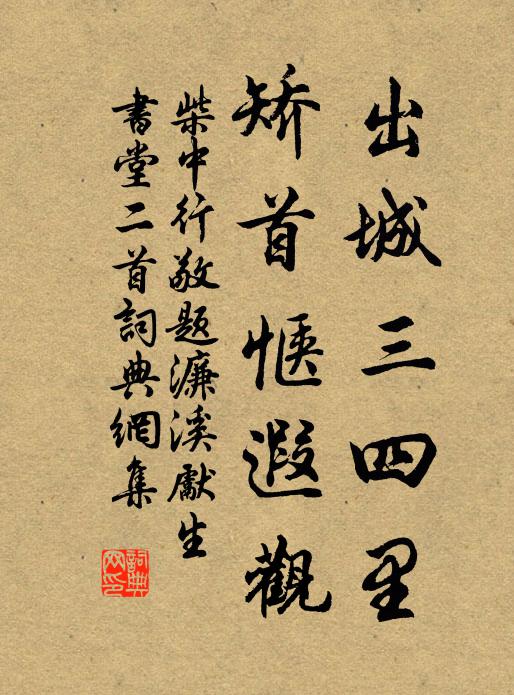 出城三四里
矫首惬遐觀
柴中行敬题濂溪獻生
書堂二首詞典網集
詞典网印